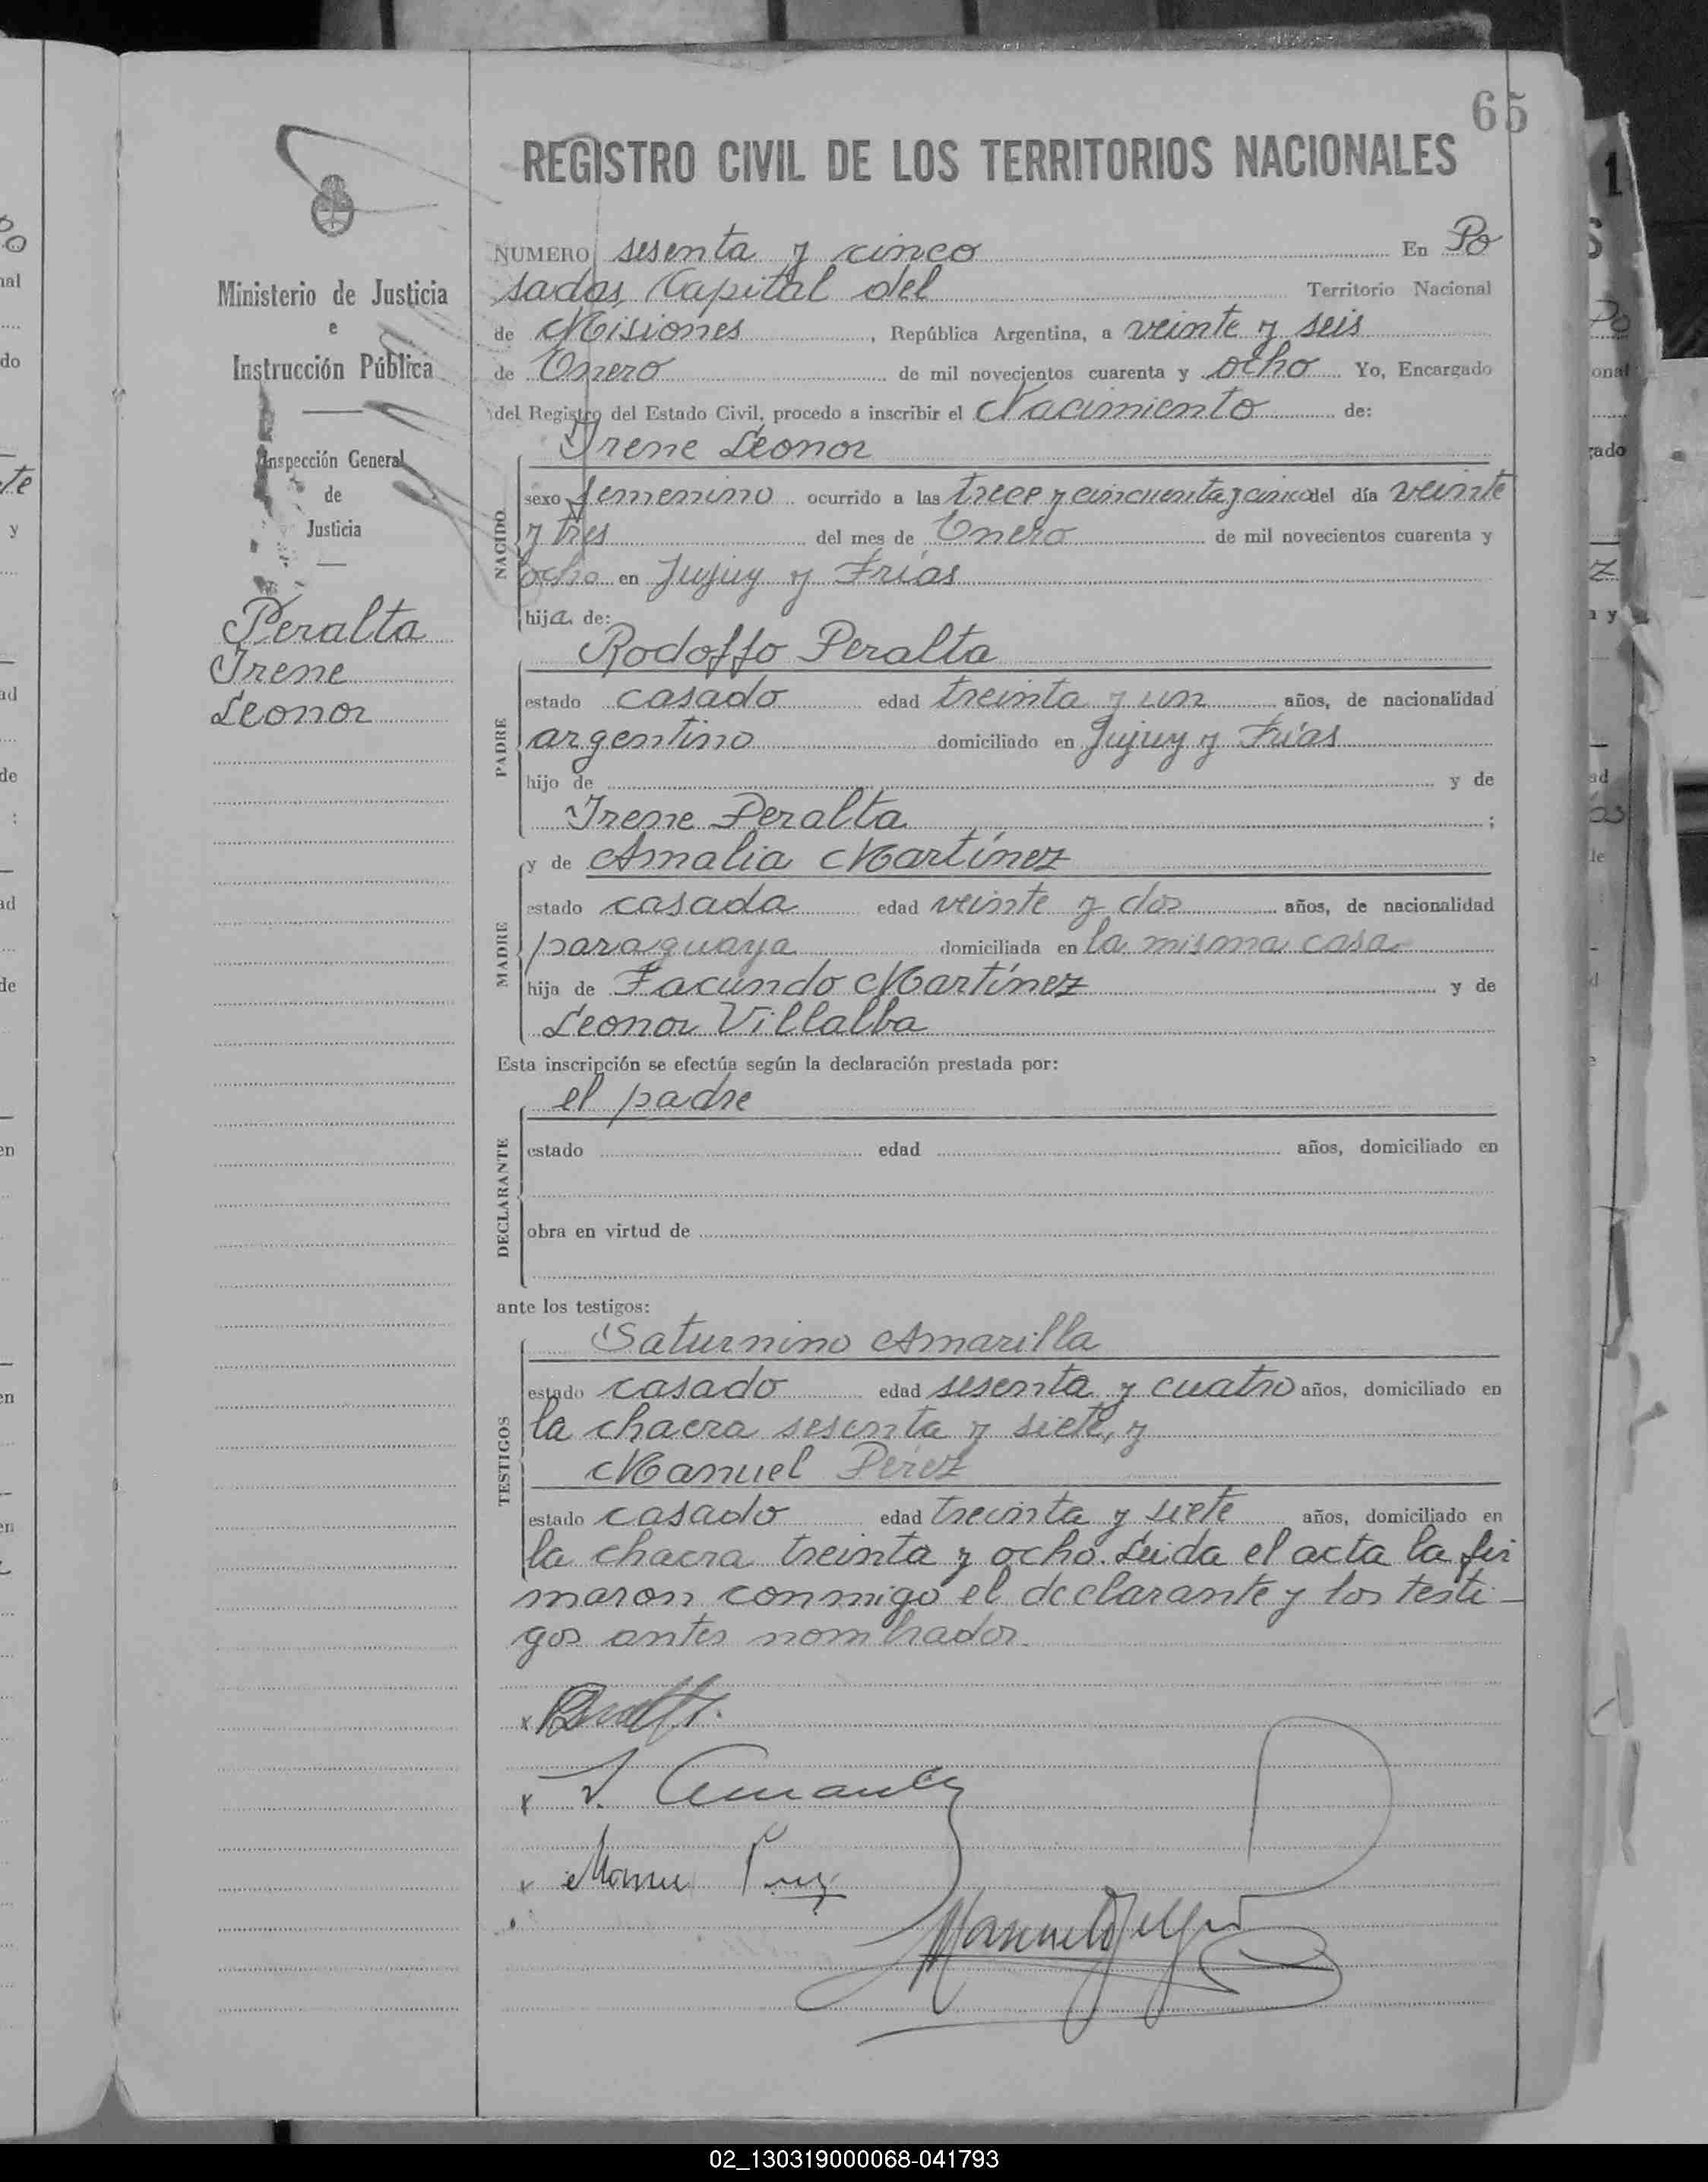 65
REGISTRO CIVIL DE LOS TERRITORIOS NACIONALES
Ministerio de Justicia
e
Instrucción Pública
Inspección General
de
Justicia
Peralta
Irene
Leonor
NUMERO sesenta y cinco En Po
sadas, Capital del Territorio Nacional
de Misiones, República Argentina, a veinte y seis
de Enero de mil novecientos cuarenta y ocho Yo, Encargado
del Registro del Estado Civil, procedo a inscribir el Nacimiento de:
Irene Leonor
NACIDO
sexo femenino ocurrido a las trece y cincuenta y cinco del día veinte
y tres del mes de Enero de mil novecientos cuarenta y
ocho en Jujuy y Frías
hija de:
Rodolfo Peralta
PADRE
estado casado edad treinta y un años, de nacionalidad
argentino domiciliado en Jujuy y Frías
hijo de y de
Irene Peralta ;
MADRE
y de Amalia Martínez
estado casada edad veinte y dos años, de nacionalidad
paraguaya domiciliada en la misma casa
hija de Facundo Martínez y de
Leonor Villalba
Esta inscripción se efectúa según la declaración prestada por:
el padre
DECLARANTE
estado edad años, domiciliado en
obra en virtud de
ante los testigos:
Saturnino Amarilla
TESTIGOS
estado casado edad sesenta y cuatro años, domiciliado en
la chacra sesenta y siete, y
Manuel Pérez
estado casado edad treinta y siete años, domiciliado en
la chacra treinta y ocho. Leida el acta la fir
maron conmigo el declarante y los testi-
gos antes nombrados.
02_130319000068-041793